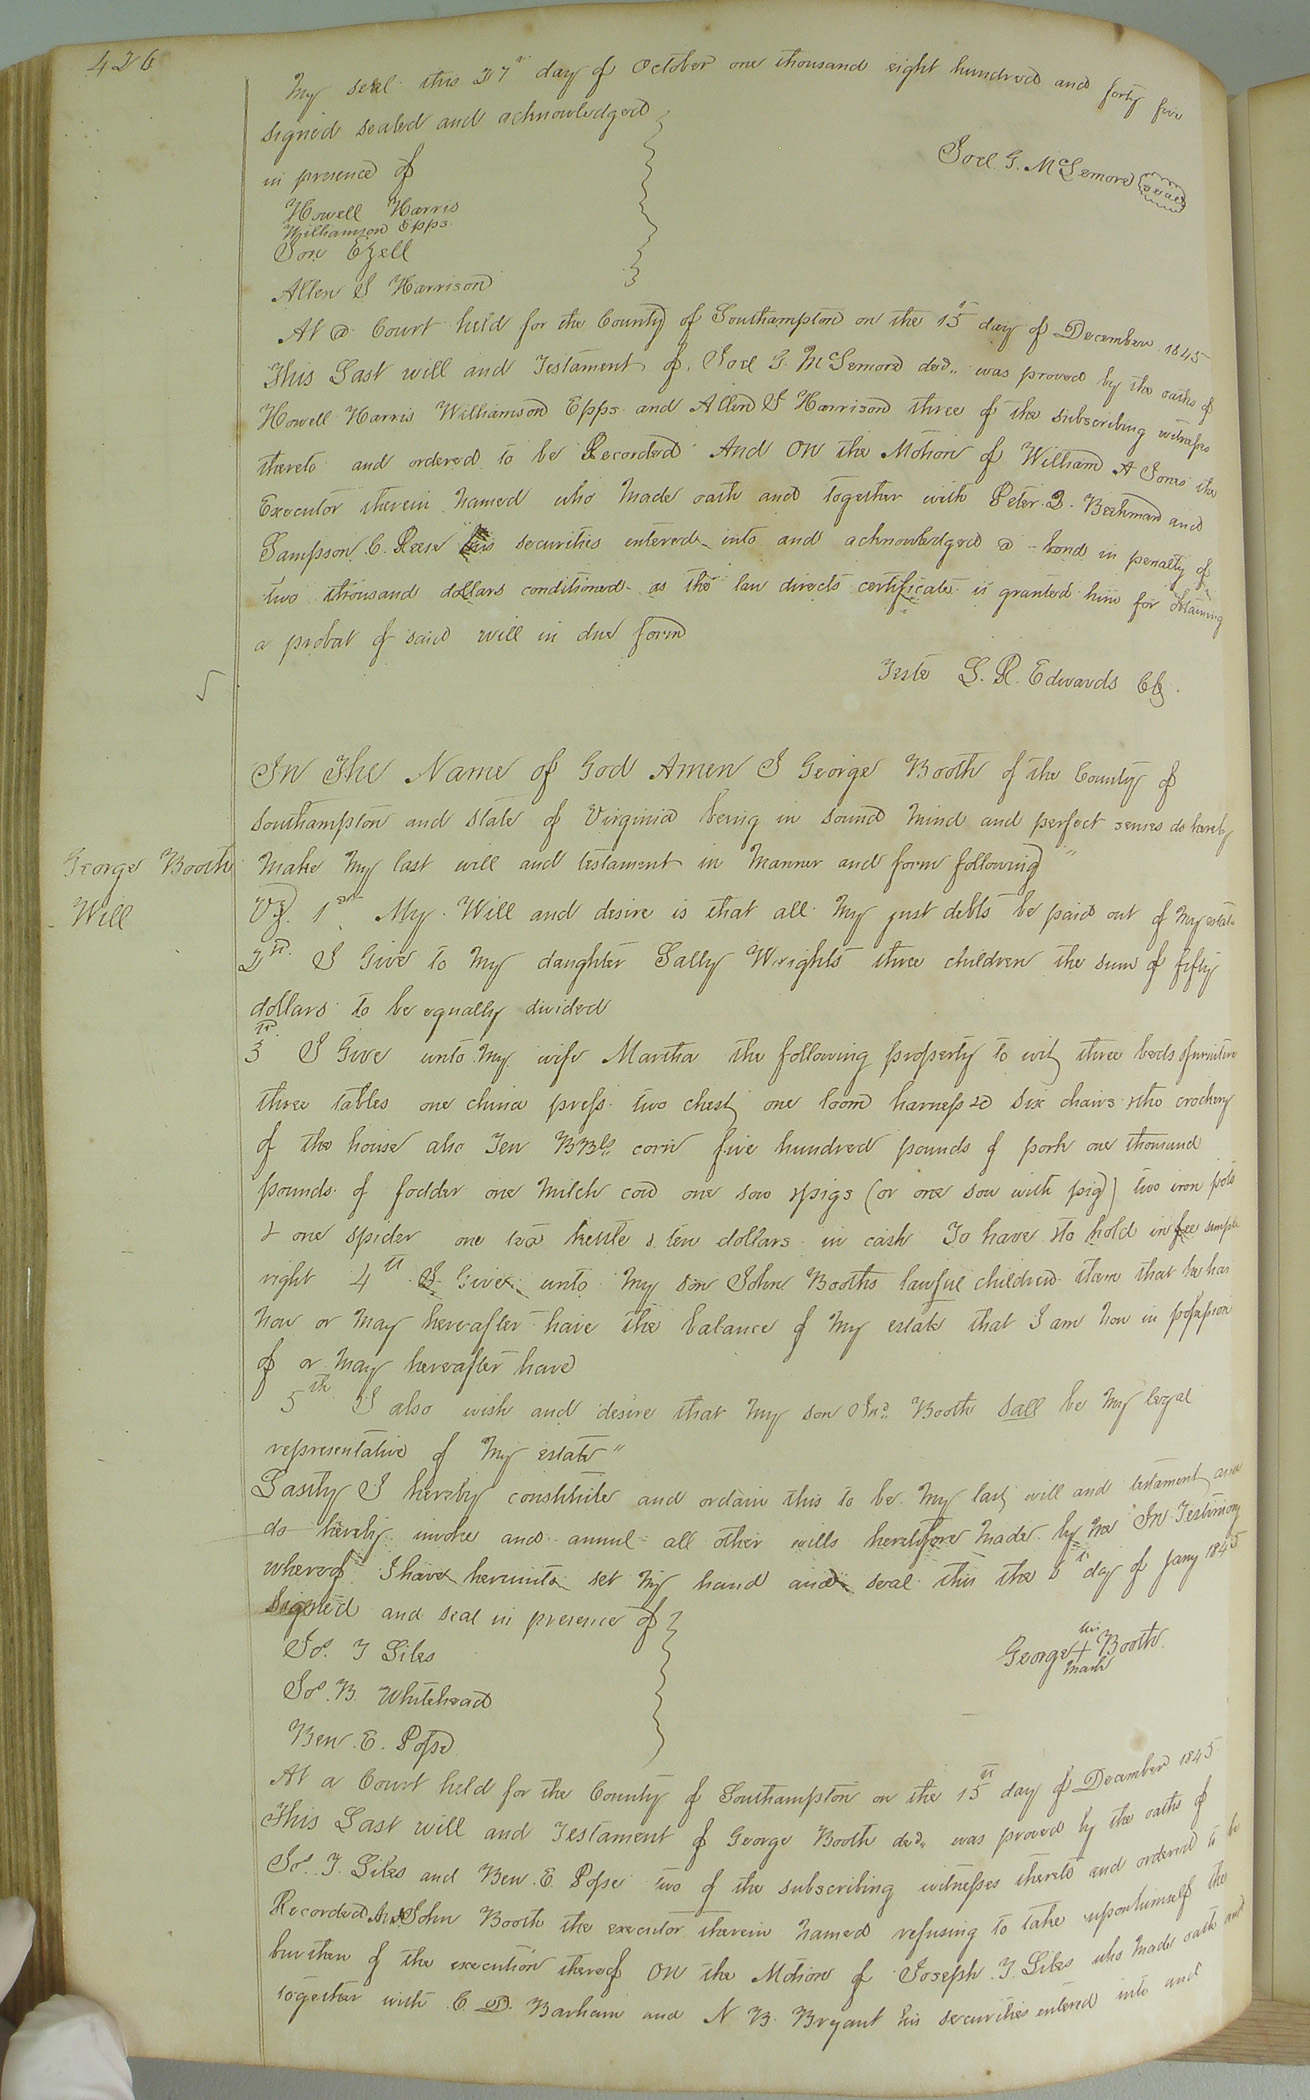 426
My seal this 27th day of October one thousand eight hundred and forty five
signed sealed and acknowledged
in presence of
Joel G. McLemore seal
Howell Harris
Williamson Epps
Jon Ezell
Allen S Harrison
At a Court held for the County of Southampton on the 15th day of December 1845
This Last will and Testament of Joel G. McLemore decd. was proved by the oaths of
Howell Harris Williamson Epps and Allen S Harrison three of the subscribing witnesses
thereto and ordered to be Recorded And On the Motion of William A Jones the
Executor therein named who made oath and together with Peter D. Beckman and
Sampson C. Reese his securities entered into and acknowledged a bond in penalty of
two thousand dollars conditioned as the law directs certificate is granted him for obtaining
a probat of said will in due form
Teste L. R. Edwards Clk.
In The Name of God Amen I George Booth of the County of
Southampton and State of Virginia being in sound mind and perfect senses do hereby
George Booth
Will
make my last will and testament in manner and form following "
Viz. 1st My Will and desire is that all my just debts be paid out of my estate
2nd I Give to my daughter Sally Wrights three children the sum of fifty
dollars to be equally divided
3rd I Give unto my wife Martha the following property to wit three beds & furniture
three tables one china press two chest one loom harness &c six chairs & the crockery
of the house also Ten BBls corn five hundred pounds of pork one thousand
pounds of fodder one milch cow one sow & pigs (or one sow with pig) two iron pots
& one spider one tea kettle & ten dollars in cash To have & to hold in fee simple
right 4th I Give unto my son John Booths lawful children them that he has
now or may hereafter have the balance of my estate that I am now in possession
of or may hereafter have
5th I also wish and desire that my son Jno. Booth sall be my legal
representative of my estate "
Lastly I hereby constitute and ordain this to be my last will and testament and
do hereby invoke and annul all other wills heretofore made by me In Testimony
whereof I have hereunto set my hand and seal this the day of Jany 1845
Signed and seal in presence of
Jos. T Liles
George his + mark Booth
Jos. B. Whitehead
Ben. E. Pope
At a Court held for the County of Southampton on the 15th day of December 1845
This Last will and Testament of George Booth decd. was proved by the oaths of
Jos. T. Liles and Ben. E. Pope two of the subscribing witnesses thereto and ordered to be
Recorded And John Booth the executor therein named refusing to take upon himself the
burthen of the execution thereof On the Motion of Joseph T. Liles who made oath and
together with C. D. Barham and N B. Bryant his securities entered into and